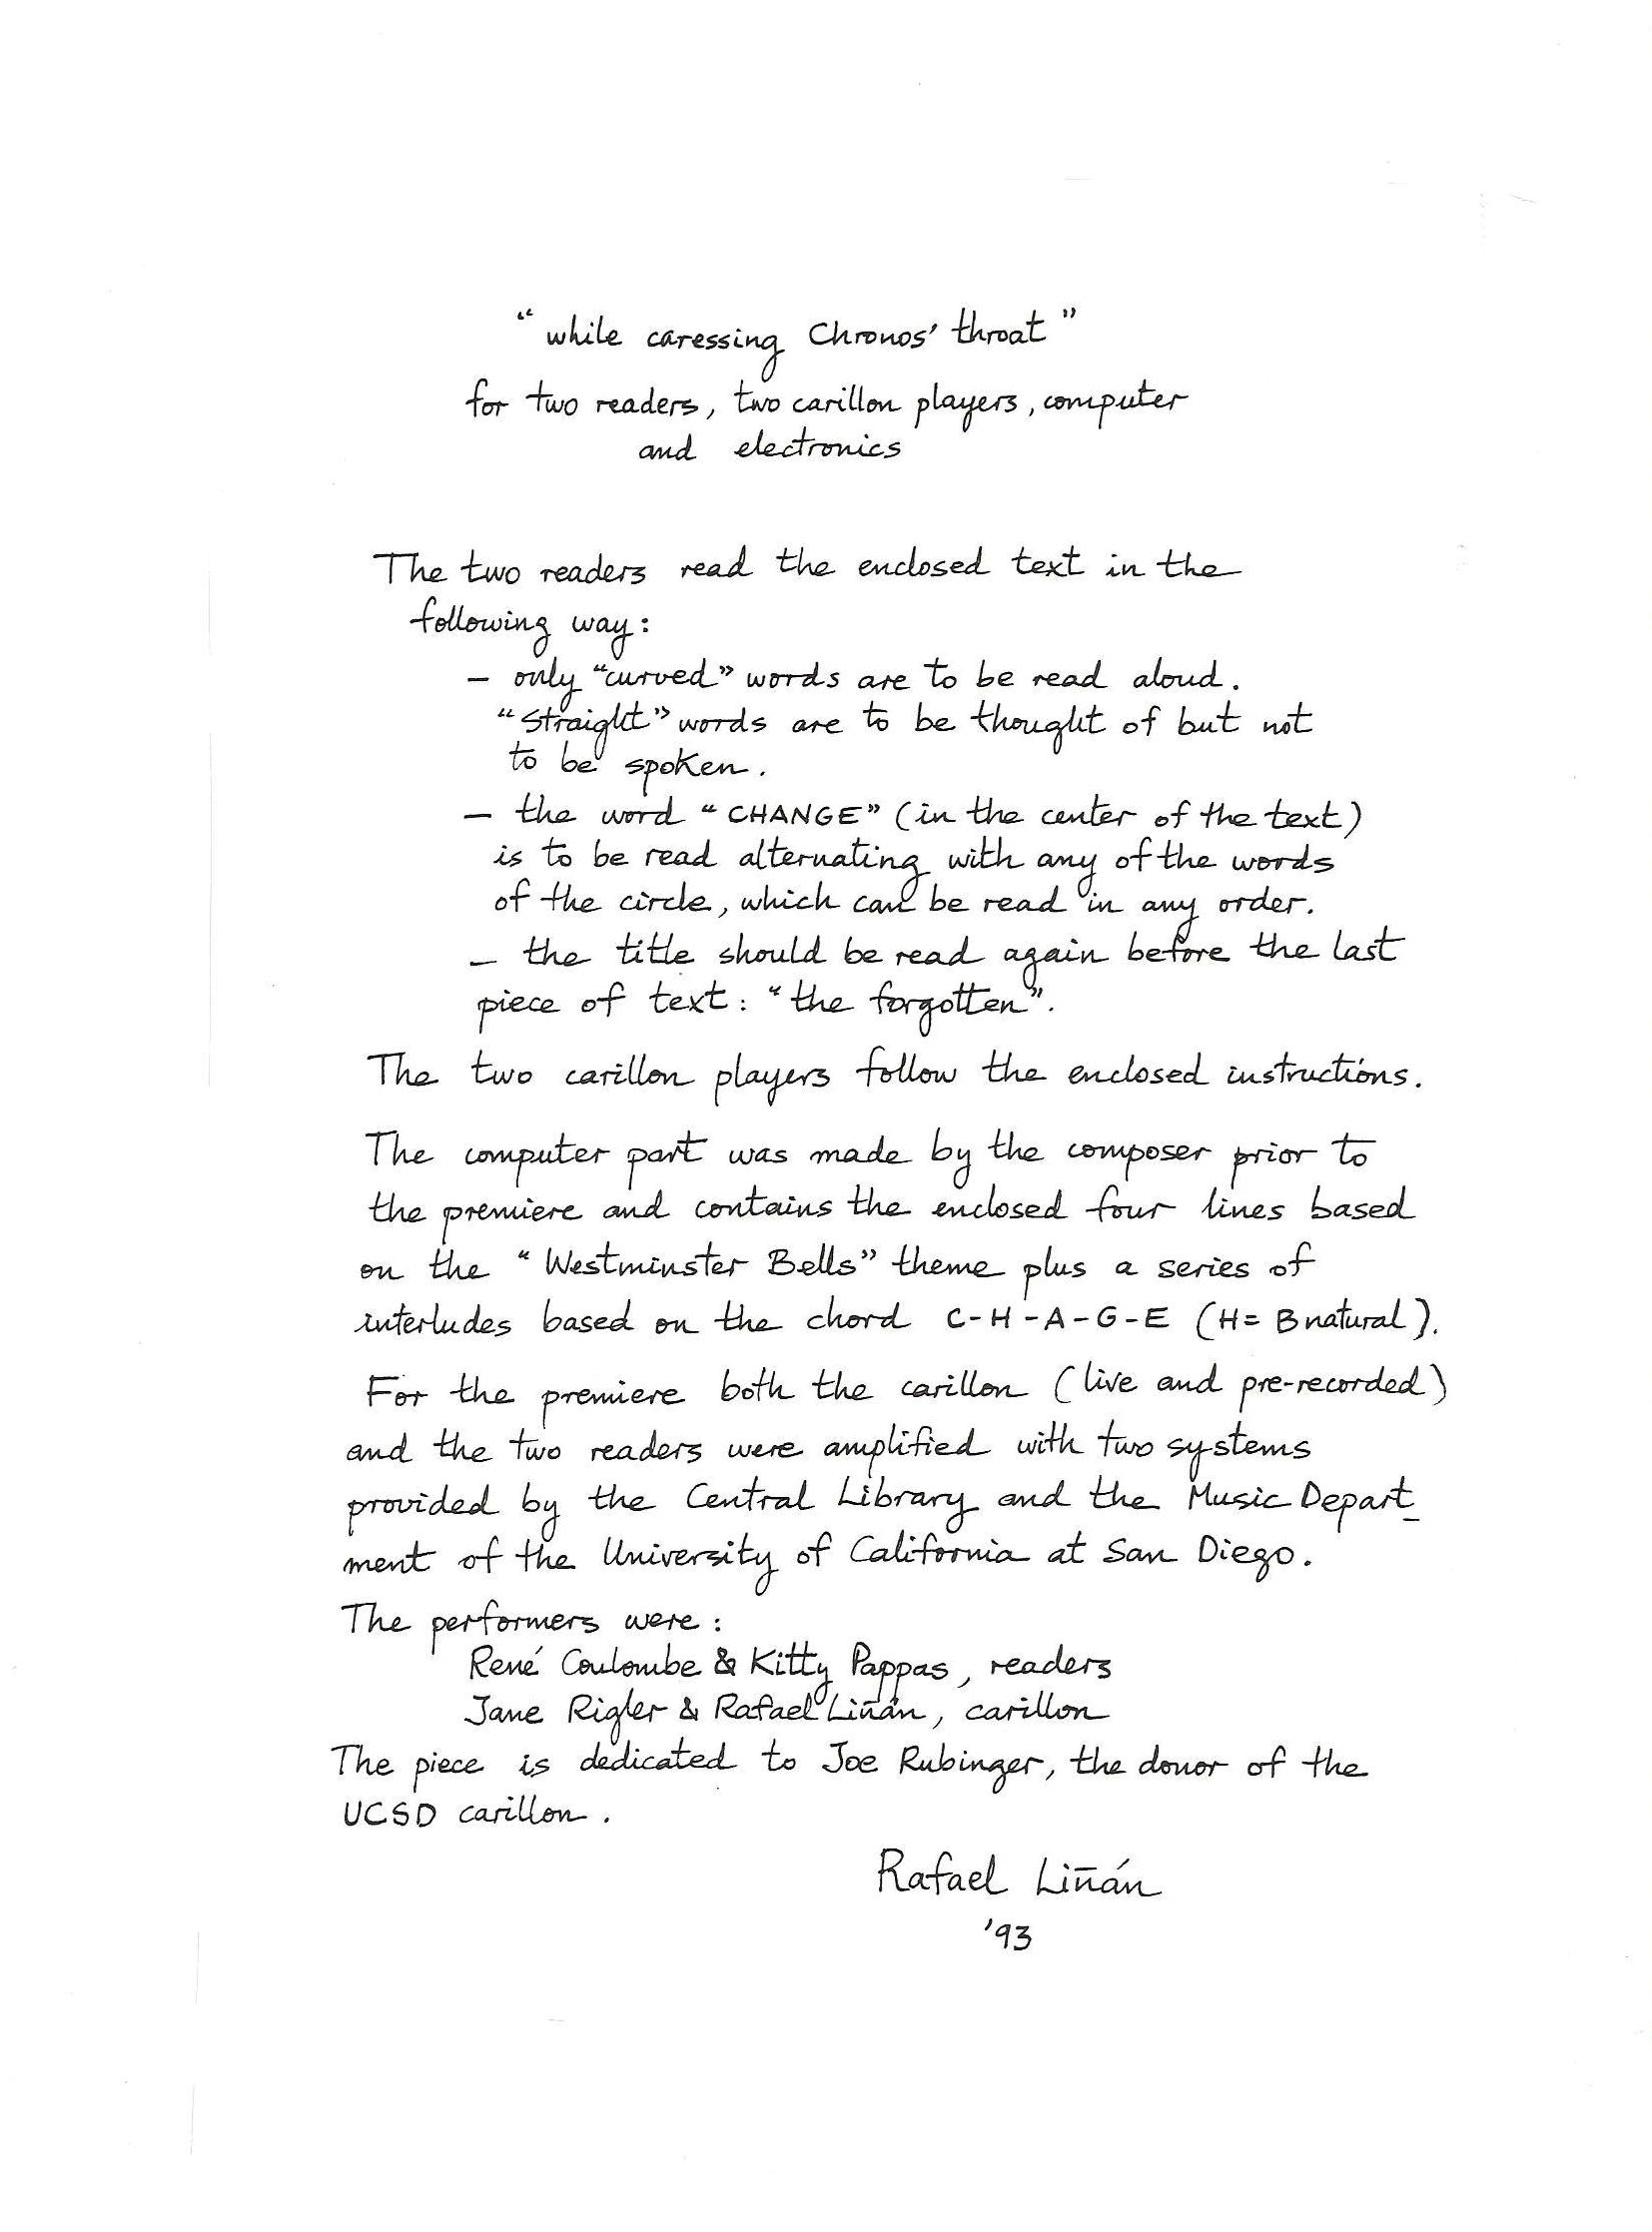 "while caressing Chronos' throat"
for two readers, two carillon players, computer
and electronics
The two readers read the enclosed text in the
following way:
– only "curved" words are to be read aloud.
"straight" words are to be thought of but not
to be spoken.
– the word "CHANGE" (in the center of the text)
is to be read alternating with any of the words
of the circle, which can be read in any order.
– the title should be read again before the last
piece of text: "the forgotten".
The two carillon players follow the enclosed instructions.
The computer part was made by the composer prior to
the premiere and contains the enclosed four lines based
on the "Westminster Bells" theme plus a series of
interludes based on the chord C-H-A-G-E (H= B natural).
For the premiere both the carillon (live and pre-recorded)
and the two readers were amplified with two systems
provided by the Central Library and the Music Depart-
ment of the University of California at San Diego.
The performers were:
René Coulombe & Kitty Pappas, readers
Jane Rigler & Rafael Liñán, carillon
The piece is dedicated to Joe Rubinger, the donor of the
UCSD carillon.
Rafael Liñán
'93